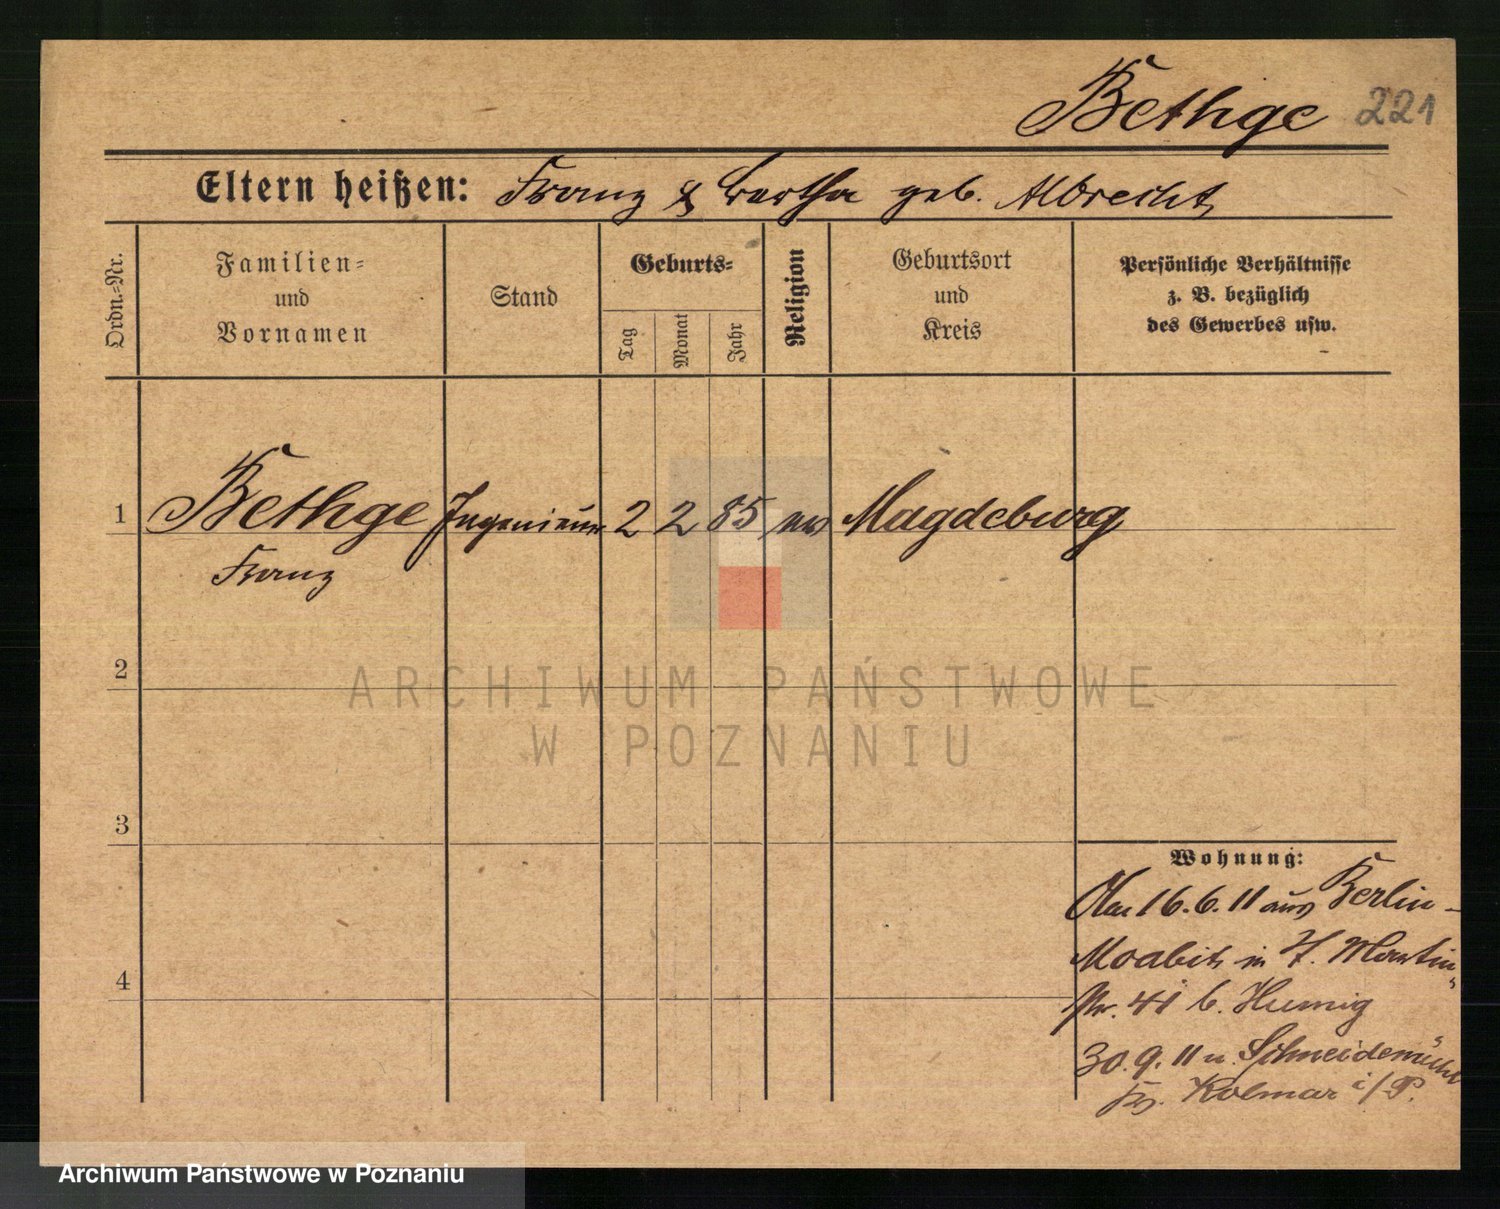 Bethge 221
Eltern heißen: Franz & Bertha geb. Albrecht
Ordn.-Nr.
Familien-
und
Vornamen
Stand
Geburts-
Tag
Monat
Jahr
Religion
Geburtsort
und
Kreis
Persönliche Verhältnisse
z. B. bezüglich
des Gewerbes usw.
1 Bethge Ingenieur 2 2 85 ev Magdeburg
Franz
2
ARCHIWUM PAŃSTWOWE
W POZNANIU
3
Wohnung:
16.6.11 aus Berlin-
Moabit in Martin
Str. 41 b.
4
30.9.11 n. Schneidemühl
Kr. Kolmar i/P.
Archiwum Państwowe w Poznaniu